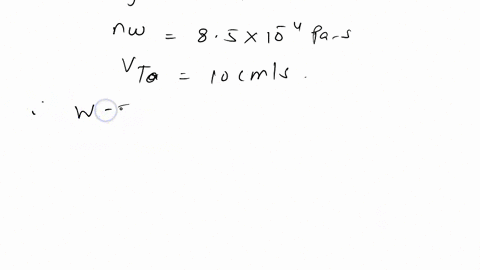 nw = 8.5 × 10⁻⁴ Pa-s
VTa = 10 cm/s.
∴ W